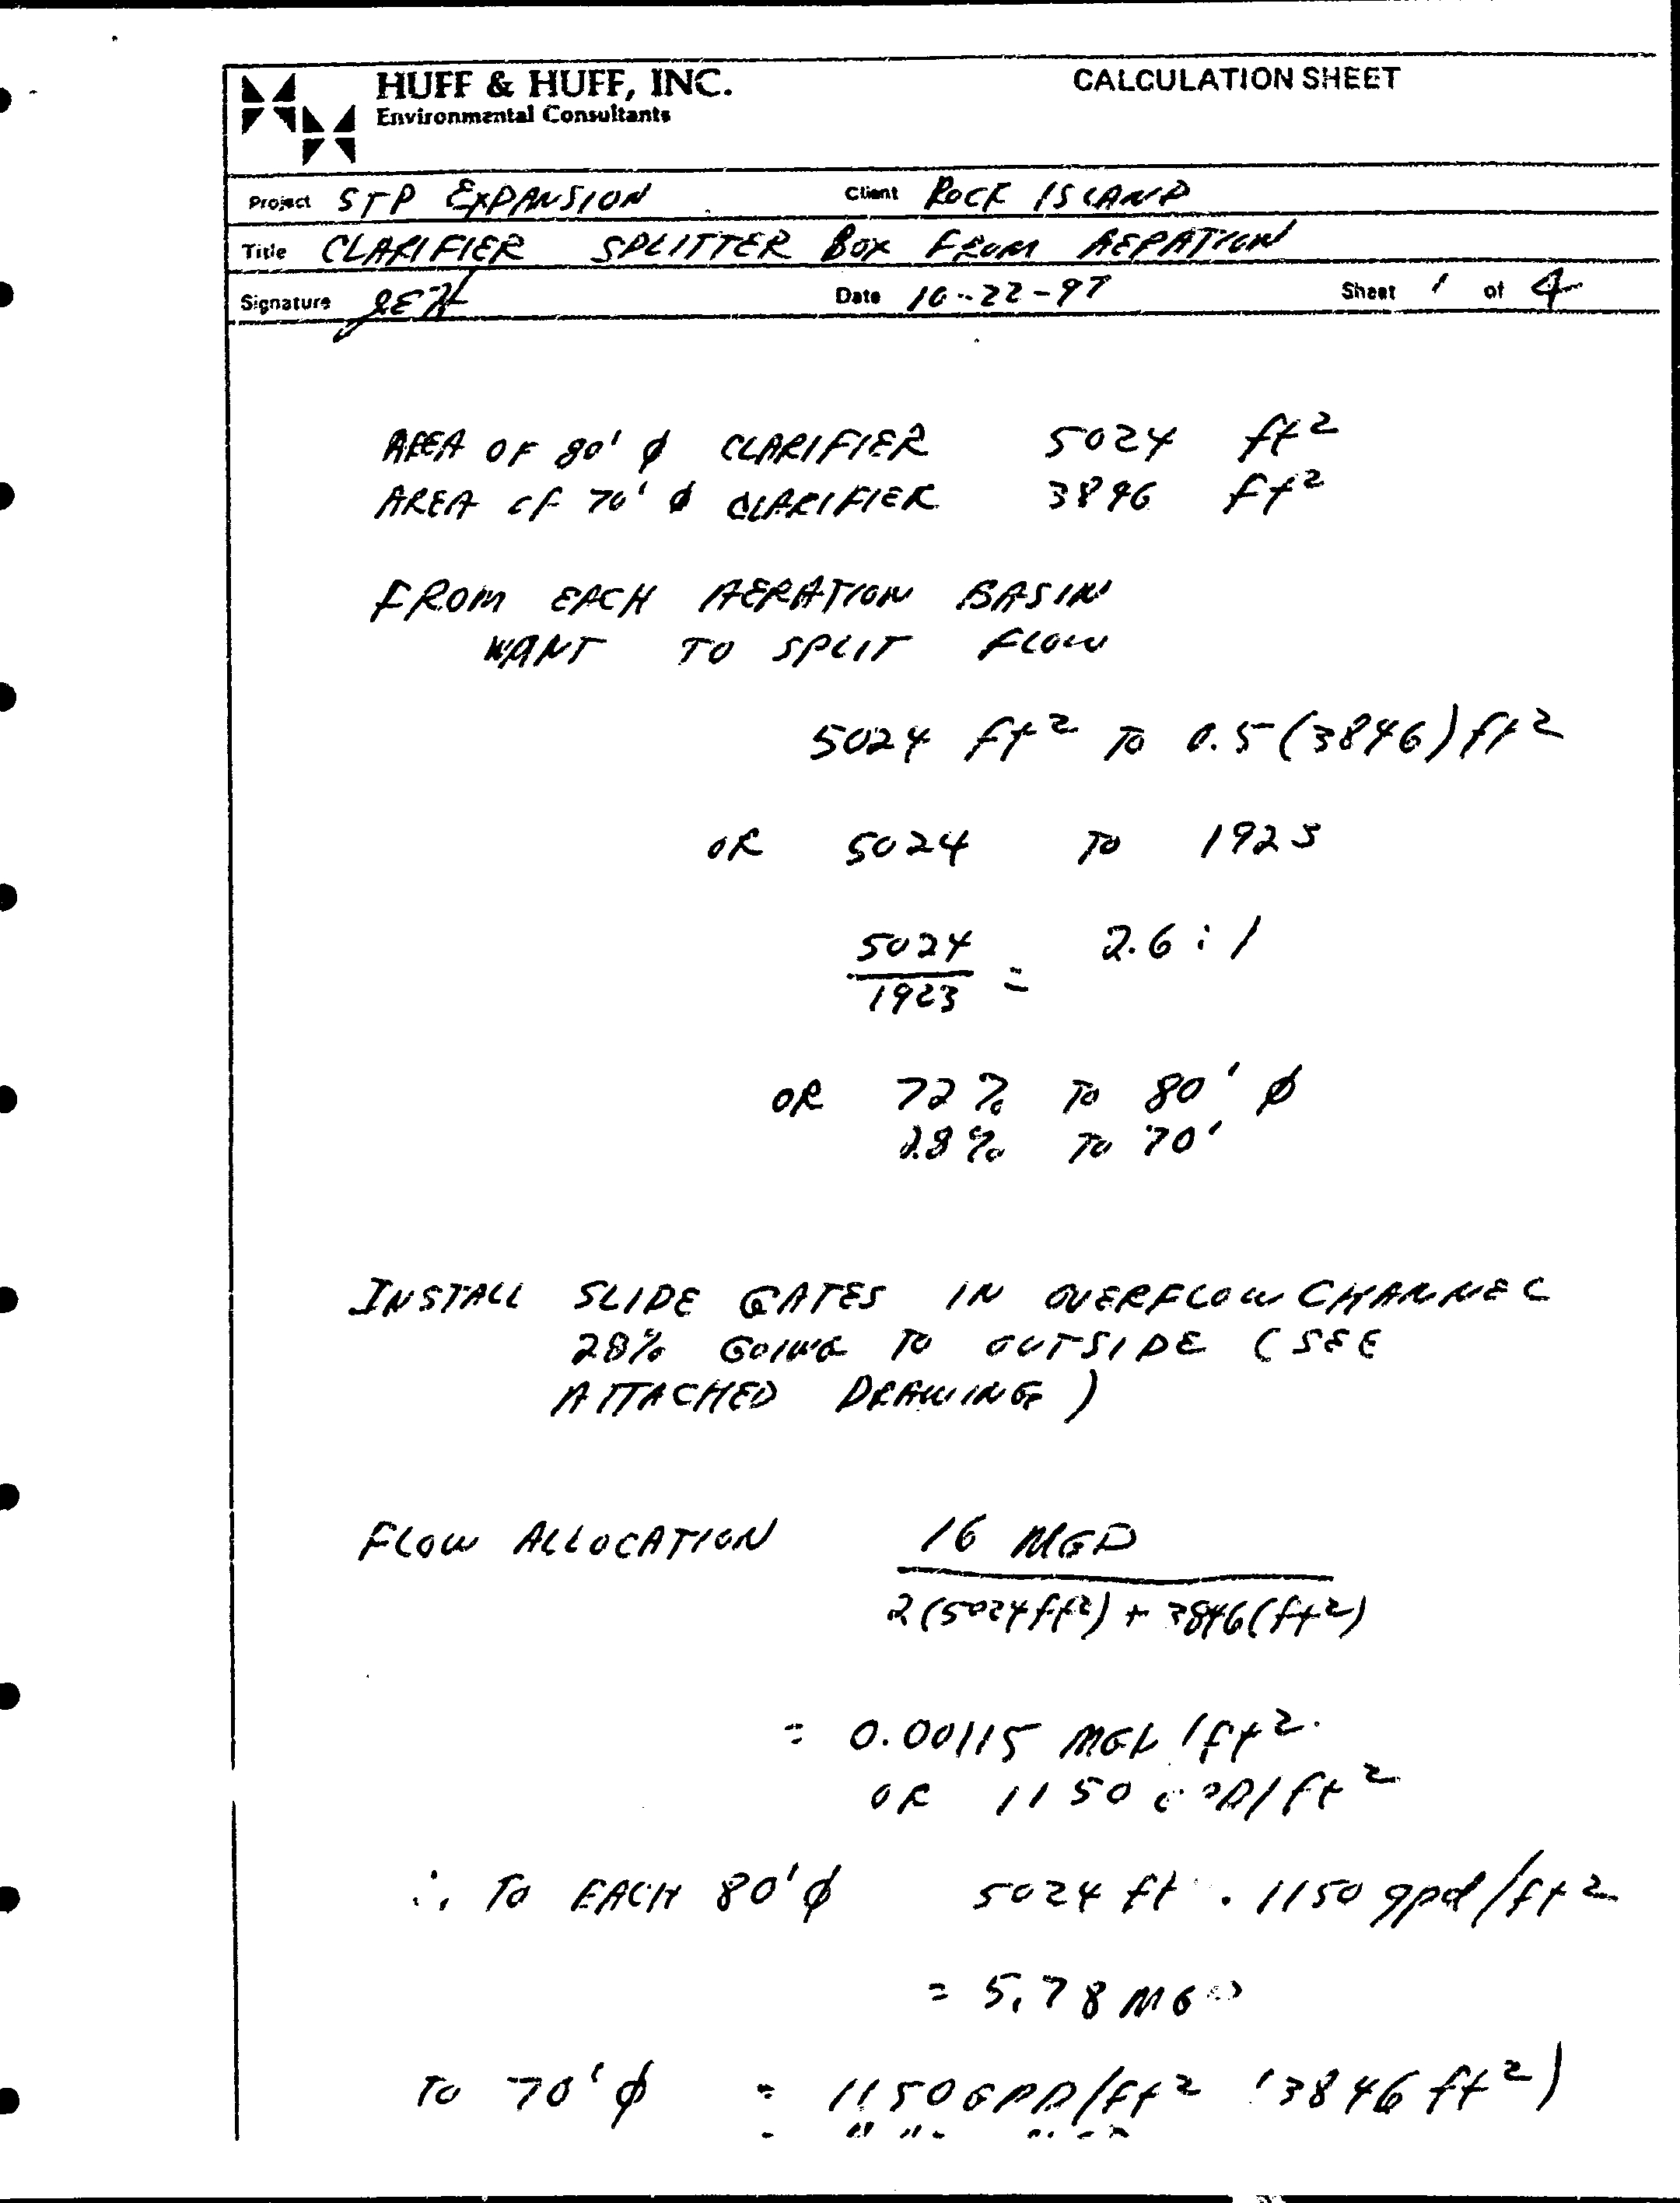 HUFF & HUFF, INC.
Environmental Consultants
CALCULATION SHEET
Project STP EXPANSION Client ROCK ISLAND
Title CLARIFIER SPLITTER BOX FROM AERATION
Signature JEH Date 10-22-97 Sheet 1 of 4
AREA OF 80' φ CLARIFIER 5024 ft²
AREA OF 70' φ CLARIFIER 3846 ft²
FROM EACH AERATION BASIN
WANT TO SPLIT FLOW
5024 ft² TO 0.5 (3846) ft²
OR 5024 TO 1923
5024
1923
= 2.6 : 1
OR 72% TO 80' φ
28% TO 70'
INSTALL SLIDE GATES IN OVERFLOW CHANNEL
28% GOING TO OUTSIDE (SEE
ATTACHED DRAWING)
FLOW ALLOCATION 16 MGD
2(5024 ft²) + 3846 (ft²)
= 0.00115 MGD/ft²
OR 1150 GPD/ft²
∴ TO EACH 80' φ 5024 ft · 1150 gpd/ft²
= 5.78 MGD
TO 70' φ = 1150 GPD/ft² (3846 ft²)